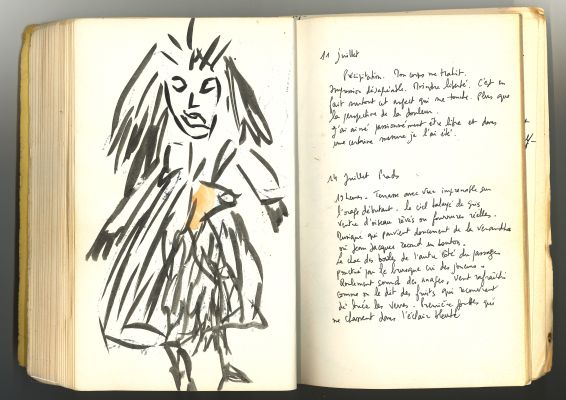 11 juillet
Précipitation. Mon corps me trahit.
Impression désagréable. Moindre liberté. C'est en
fait surtout cet aspect qui me touche. Plus que
la perspective de la douleur.
J'ai aimé passionnément être libre et dans
une certaine mesure je l'ai été.
14 juillet Prads
19 heures. Terrasse avec vue imprenable sur
l'orage débutant. Le ciel balayé de gris
ventre d'oiseau rêvés ou fourrures réelles.
Musique qui parvient doucement de la
où Jean Jacques
Le choc des boules de l'autre côté du passage
ponctué par le brusque cri des joueurs.
Roulement sourd des nuages, vent rafraîchi
comme on le dit des fruits qui
les verres. Premières gouttes qui
me classent dans l'éclair bleuté